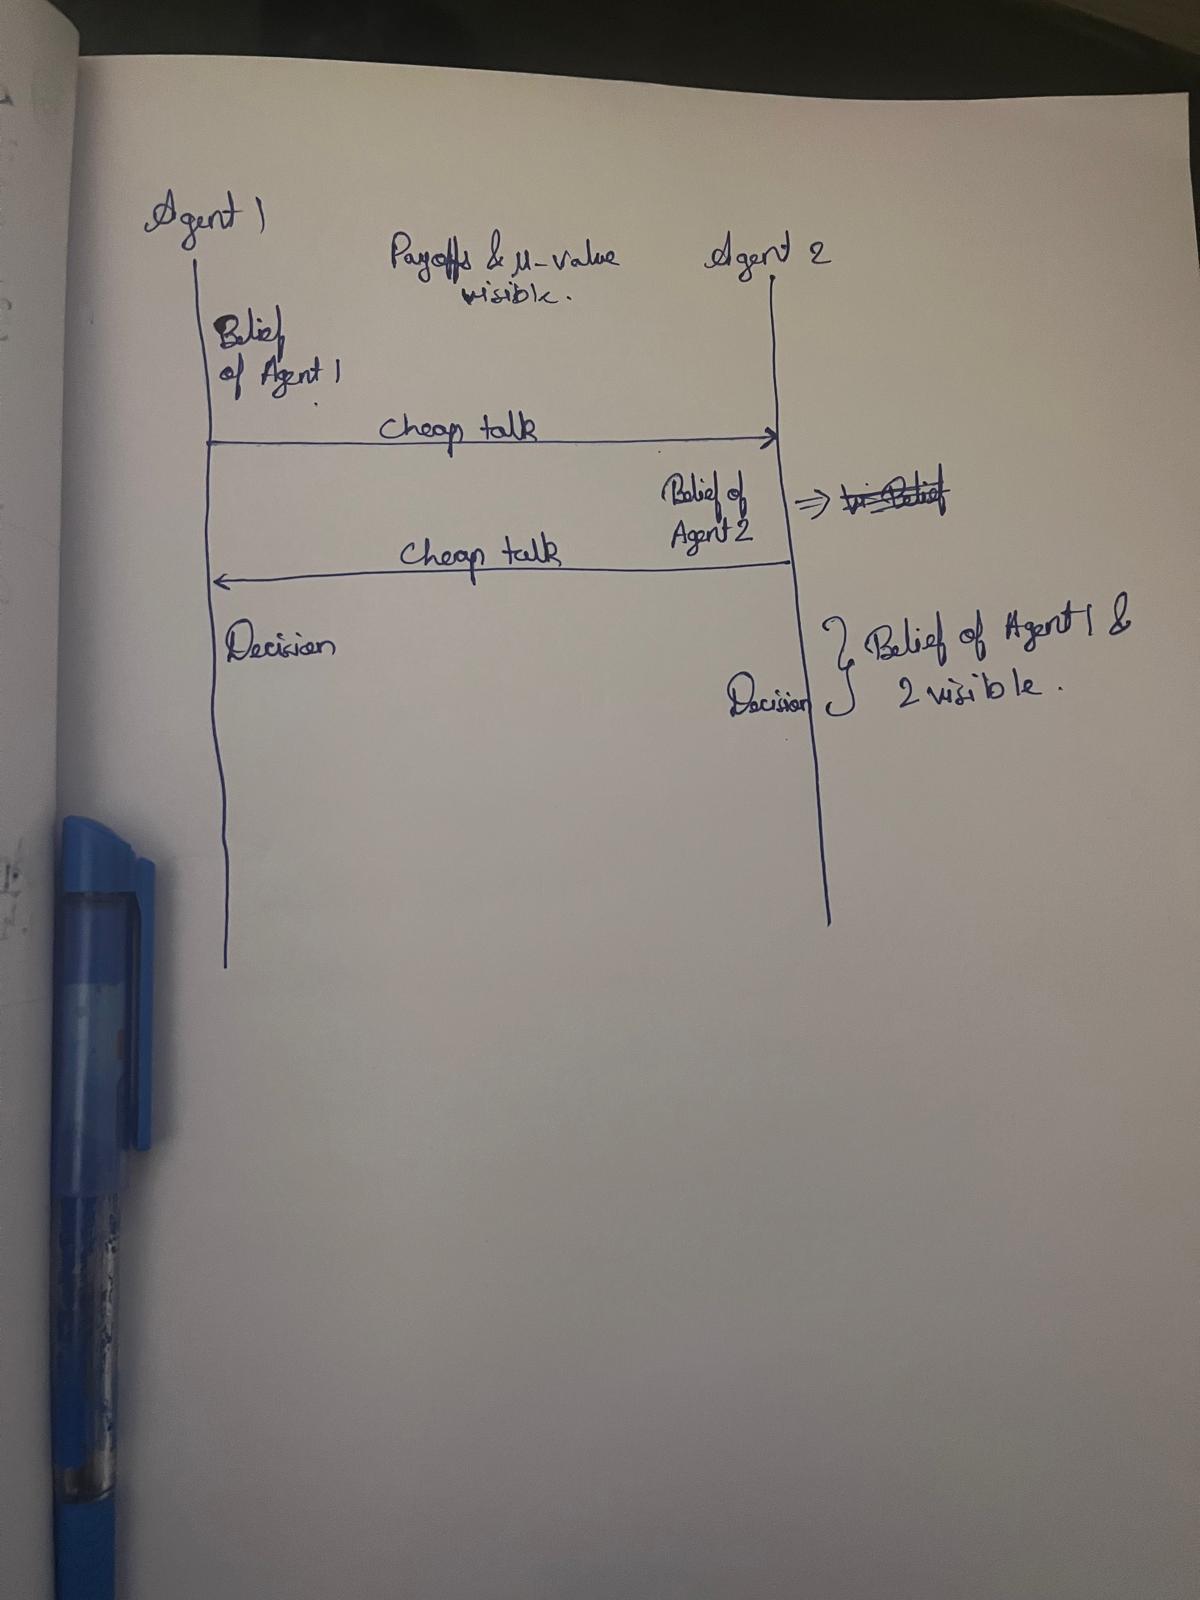 Agent 1
Payoffs & μ-value
visible.
Agent 2
Belief
of Agent 1
Cheap talk
Belief of
Agent 2
⇒ Belief
Cheap talk
Decision
Decision
} Belief of Agent 1 &
2 visible.